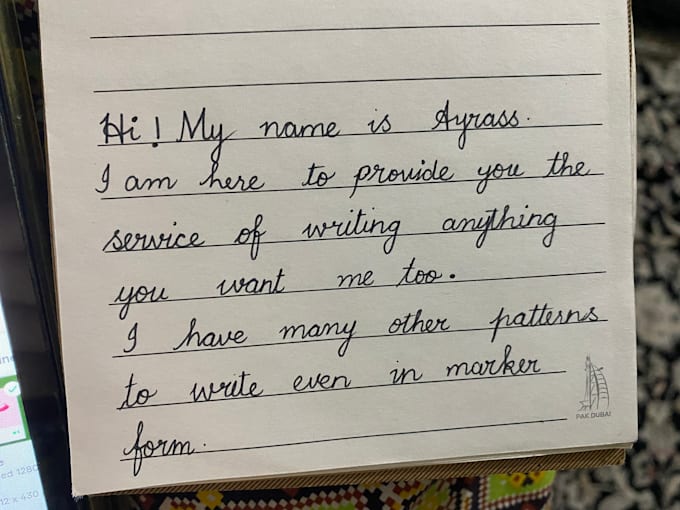 Hi! My name is Ayrass.
I am here to provide you the
service of writing anything
you want me too.
I have many other patterns
to write even in marker
form.
PAK DUBAI
ed 1280
12 x 430